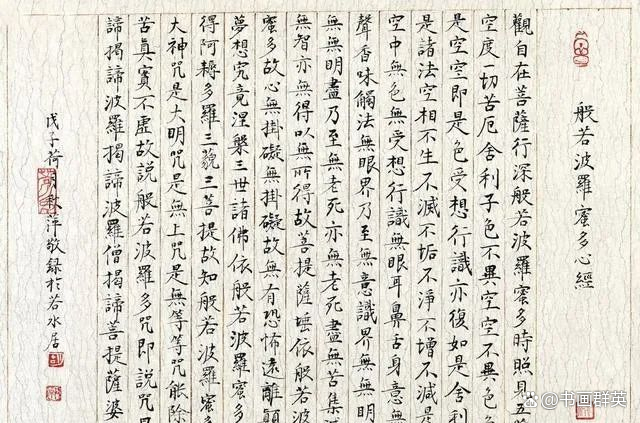 般若波羅蜜多心經
觀自在菩薩行深般若波羅蜜多時照見五
空度一切苦厄舍利子色不異空空不異色
是空空即是色受想行識亦復如是舍利
是諸法空相不生不滅不垢不淨不增不減是
空中無色無受想行識無眼耳鼻舌身意無
聲香味觸法無眼界乃至無意識界無無明
無無明盡乃至無老死亦無老死盡無苦集滅
無智亦無得以無所得故菩提薩埵依般若波
蜜多故心無掛礙無掛礙故無有恐怖遠離顛
夢想究竟涅槃三世諸佛依般若波羅蜜多
得阿耨多羅三藐三菩提故知般若波羅蜜
大神咒是大明咒是無上咒是無等等咒能除
苦真實不虛故說般若波羅多咒即說咒曰
諦揭諦波羅揭諦波羅僧揭諦菩提薩婆
戊子荷月秋萍敬錄於若水居
书画群英